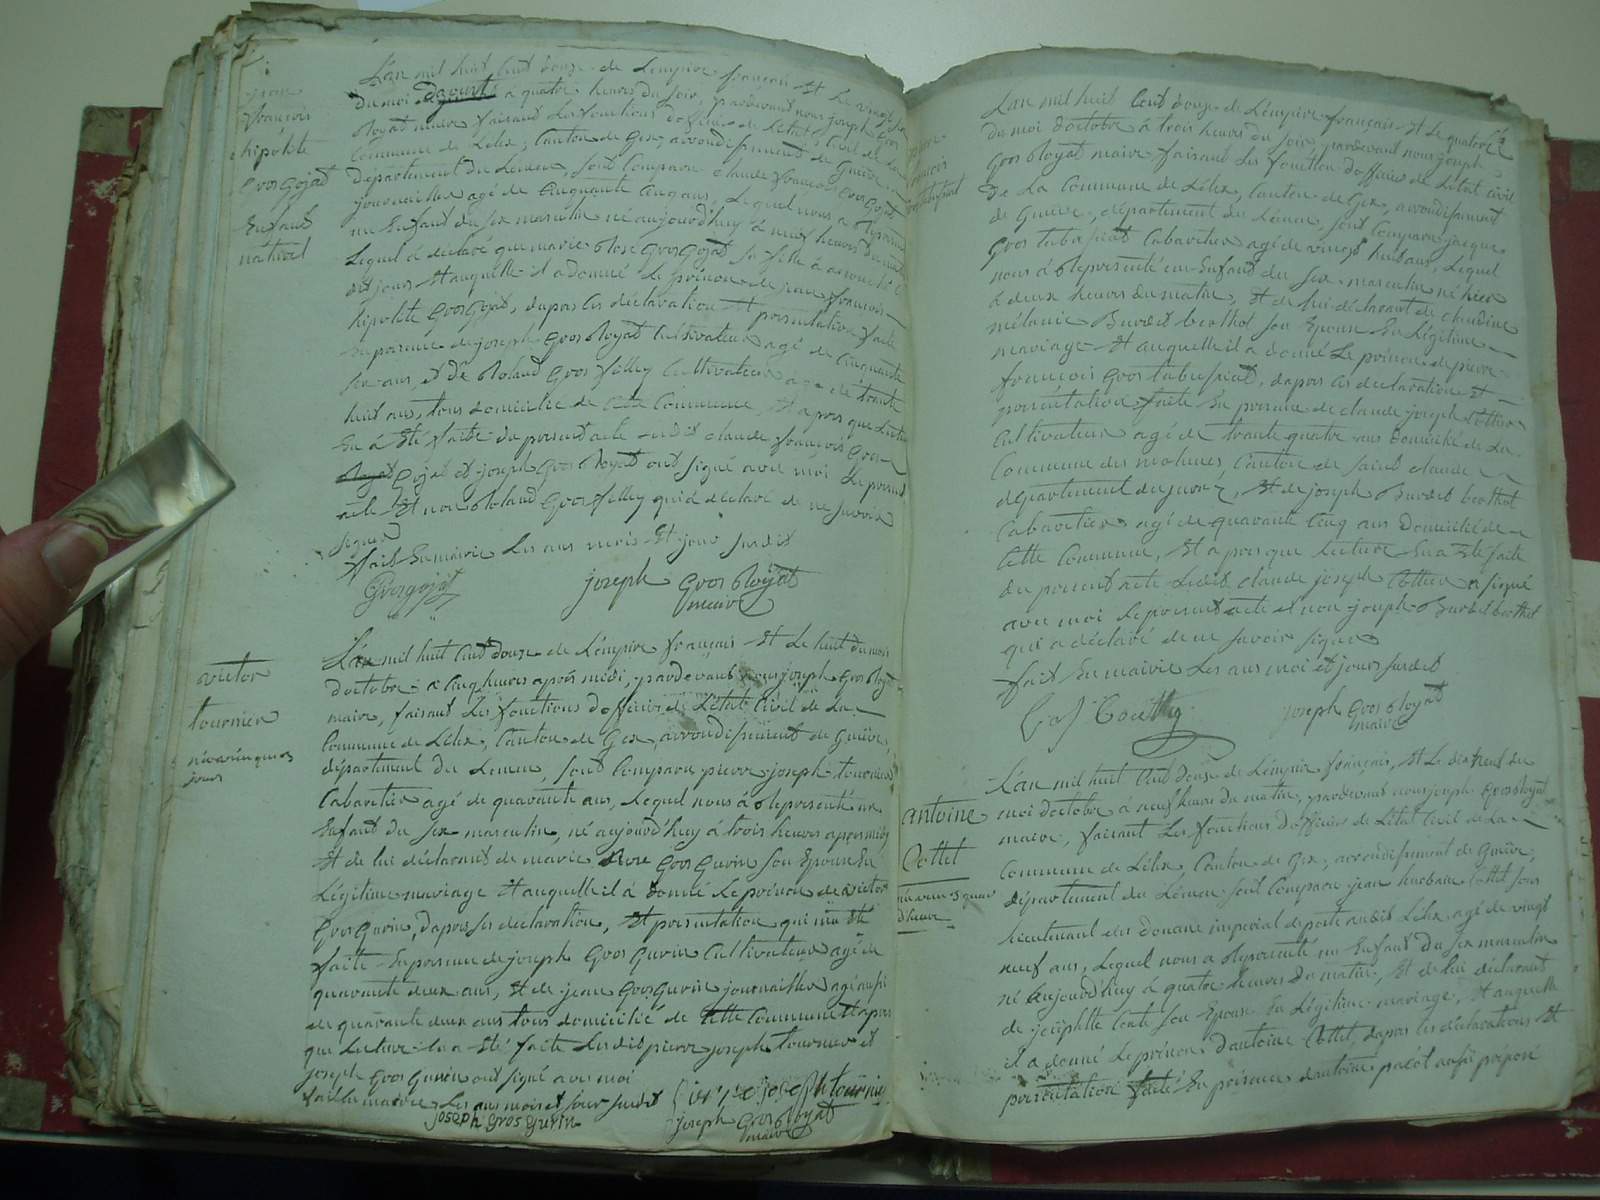 jean
françois
hipolite
Gros Gojat
Enfant
naturel
L'an mil huit Cent douze de L'empire français Et Le vingt
du moi daoust à quatre heures du soir, pardevant nous joseph Gros
Royat maire faisant Les fonctions d'officier de L'état Civil de La
Commune de Lélex, Canton de Gex, arrondissement de Genève
département du Léman, sont Comparu Claude françois Gros Gojat
journaillier agé de Cinquante Cinq ans, Lequel nous a représenté
un Enfant du sex masculin né aujourd'huy à neuf heures du matin
Lequel à déclaré que marie Rose Gros Gojat sa fille à accouché à
dit jour Et auquelle il a donné Le prénom de jean françois
hipolite Gros Gojat, dapres Ces déclaration Et présentation faite
En présence de joseph Gros Royat Cultivateur agé de Cinquante
six ans, et de Roland Gros filley Cultivateur agé de trante
huit ans, tous domicilié de Cette Commune, Et apres que Lecture
En a Eté faite du present acte Ledit claude françois Gros
Royat Gojat et joseph Gros Royat ont signé avec moi Le present
acte Et non Roland Gros filley qui à déclaré de ne savoir
signer
fait En mairie Les ans mois Et jour susdit
Grosgojat
joseph Gros Royat
maire
victor
tournier
né
jours
L'an mil huit Cent douze de L'empire français Et Le huit du mois
d'octobre à Cinq heures après midi, pardevant nous joseph Gros Royat
maire, faisant Les fonctions d'officier de L'état Civil de La
Commune de Lélex, Canton de Gex, arrondissement de Genève,
département du Léman, sont Comparu pierre joseph tournier
Cabaretier agé de quarante ans, Lequel nous à Représenté un
Enfant du sex masculin, né aujourd'huy à trois heures apres midy
Et de lui déclarant de marie Gros Gurin son Epouse En
Légitime mariage Et auquelle il à donné Le prénom de victor
Gros Gurin, dapres ses déclaration, Et présentation qui ma été
faite En présence de joseph Gros Gurin Cultivateur agé de
quarante deux ans, Et de jean Gros Gurin journaillier agé aussi
de quarante deux ans tous domicilié de Cette Commune Et apres
que Lecture En a Eté faite Lesdit pierre joseph tournier et
joseph Gros Gurin ont signé avec moi
fait En mairie Les ans mois et jour susdit
pierre joseph tournier
joseph gros gurin
joseph Gros Royat
maire
pierre
françois
L'an mil huit Cent douze de L'empire français Et Le quatorze
du moi d'octobre à trois heures du soir, pardevant nous joseph
Gros Royat maire faisant Les fonction d'officier de L'état Civil
De La Commune de Lélex, Canton de Gex, arrondissement
de Genève, département du Léman, sont Comparu jacque
Gros tabussiat Cabaretier agé de vingt huit ans, Lequel
nous à Représenté un Enfant du sex masculin né hier
à deux heures du matin, Et de lui déclarant de claudine
mélanie Burdet berthot son Epouse En Légitime
mariage Et auquelle il a donné Le prénom de pierre
françois Gros tabussiat, dapres Ces déclaration Et
présentation faite En présence de claude joseph Cottier
Cultivateur agé de trante quatre ans domicilié de La
Commune des molunes, Canton de saint claude
département du jura, Et de joseph Burdet berthot
Cabaretier agé de quarante Cinq ans domicilié de
Cette Commune, Et apres que Lecture En a Eté faite
du present acte Ledit claude joseph Cottier a signé
avec moi Le present acte et non joseph Burdet berthot
qui a déclaré de ne savoir signer
fait En mairie Les ans moi et jours susdit
joseph Gros Royat
maire
antoine
Cottet
L'an mil huit Cent douze de L'empire français, Et Le dix neuf du
moi d'octobre à neuf heures du matin, pardevant nous joseph Gros Royat
maire, faisant Les fonctions d'officier de L'état Civil de La
Commune de Lélex, Canton de Gex, arrondissement de Genève,
département du Léman sont Comparu jean Cottet sous
Lieutenant des douane imperial de poste audit Lélex agé de vingt
neuf ans, Lequel nous a Représenté un Enfant du sex masculin
né aujourd'huy à quatre heures du matin, Et de lui déclarant
de joséphtte Conte son Epouse En Légitime mariage, Et auquelle
il a donné Le prénom d'antoine Cottet, dapres Ces déclarations Et
présentation faite En présence d'antoine pacot aussi préposé